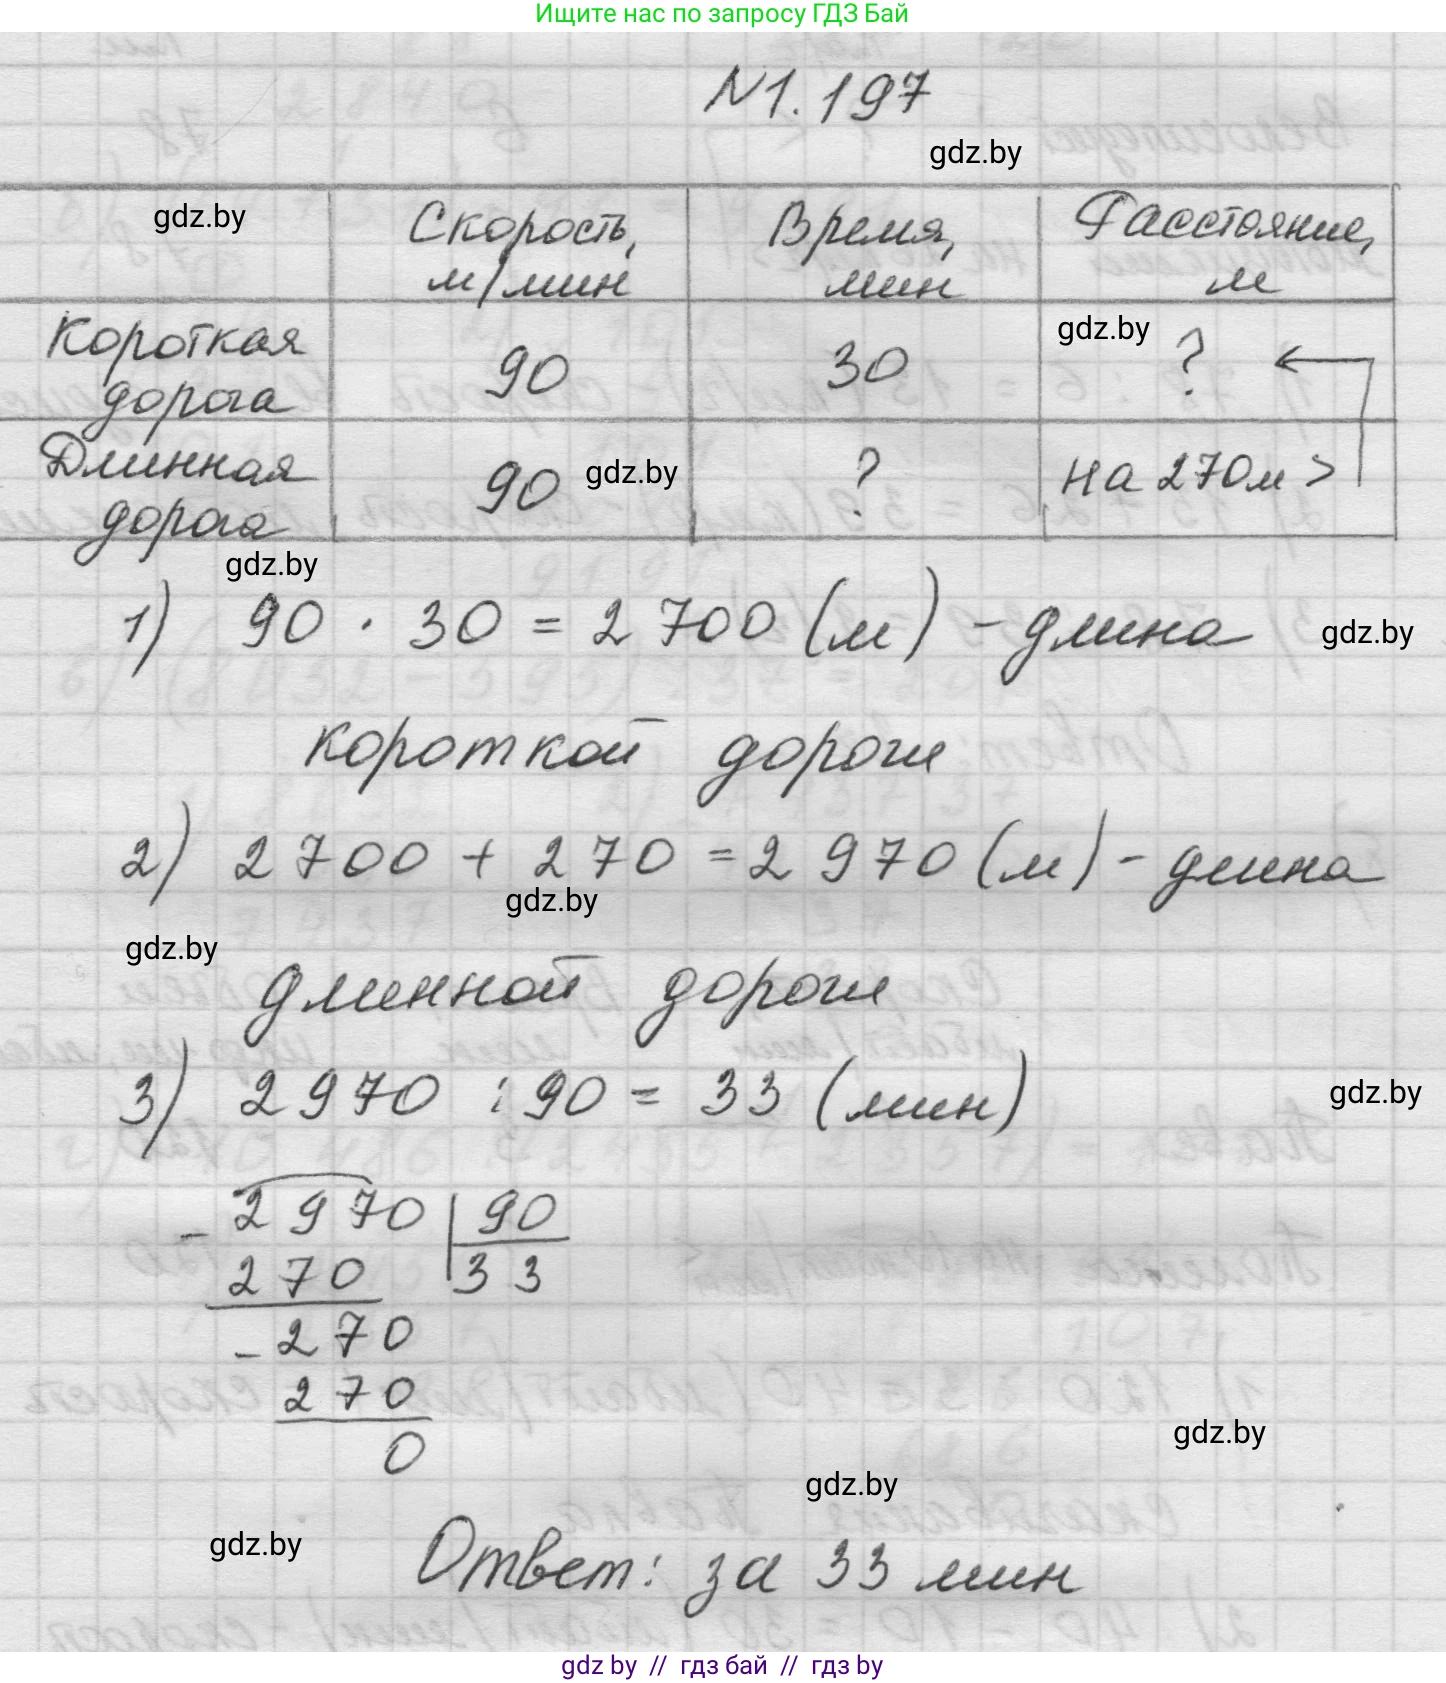 Ищите нас по запросу ГДЗ Бай
№1.197
gdz.by
gdz.by
Скорость, м/мин
Время, мин
Расстояние, м
Короткая дорога
90
30
gdz.by
?
Длинная дорога
90
gdz.by
?
на 270м >
gdz.by
1) 90 · 30 = 2 700 (м) - длина
gdz.by
короткой дороги
2) 2 700 + 270 = 2 970 (м) - длина
gdz.by
gdz.by
длинной дороги
3) 2 970 : 90 = 33 (мин)
gdz.by
- 2970 | 90
270 33
- 270
270
0
gdz.by
gdz.by
gdz.by
Ответ: за 33 мин
gdz by // гдз бай // гдз by